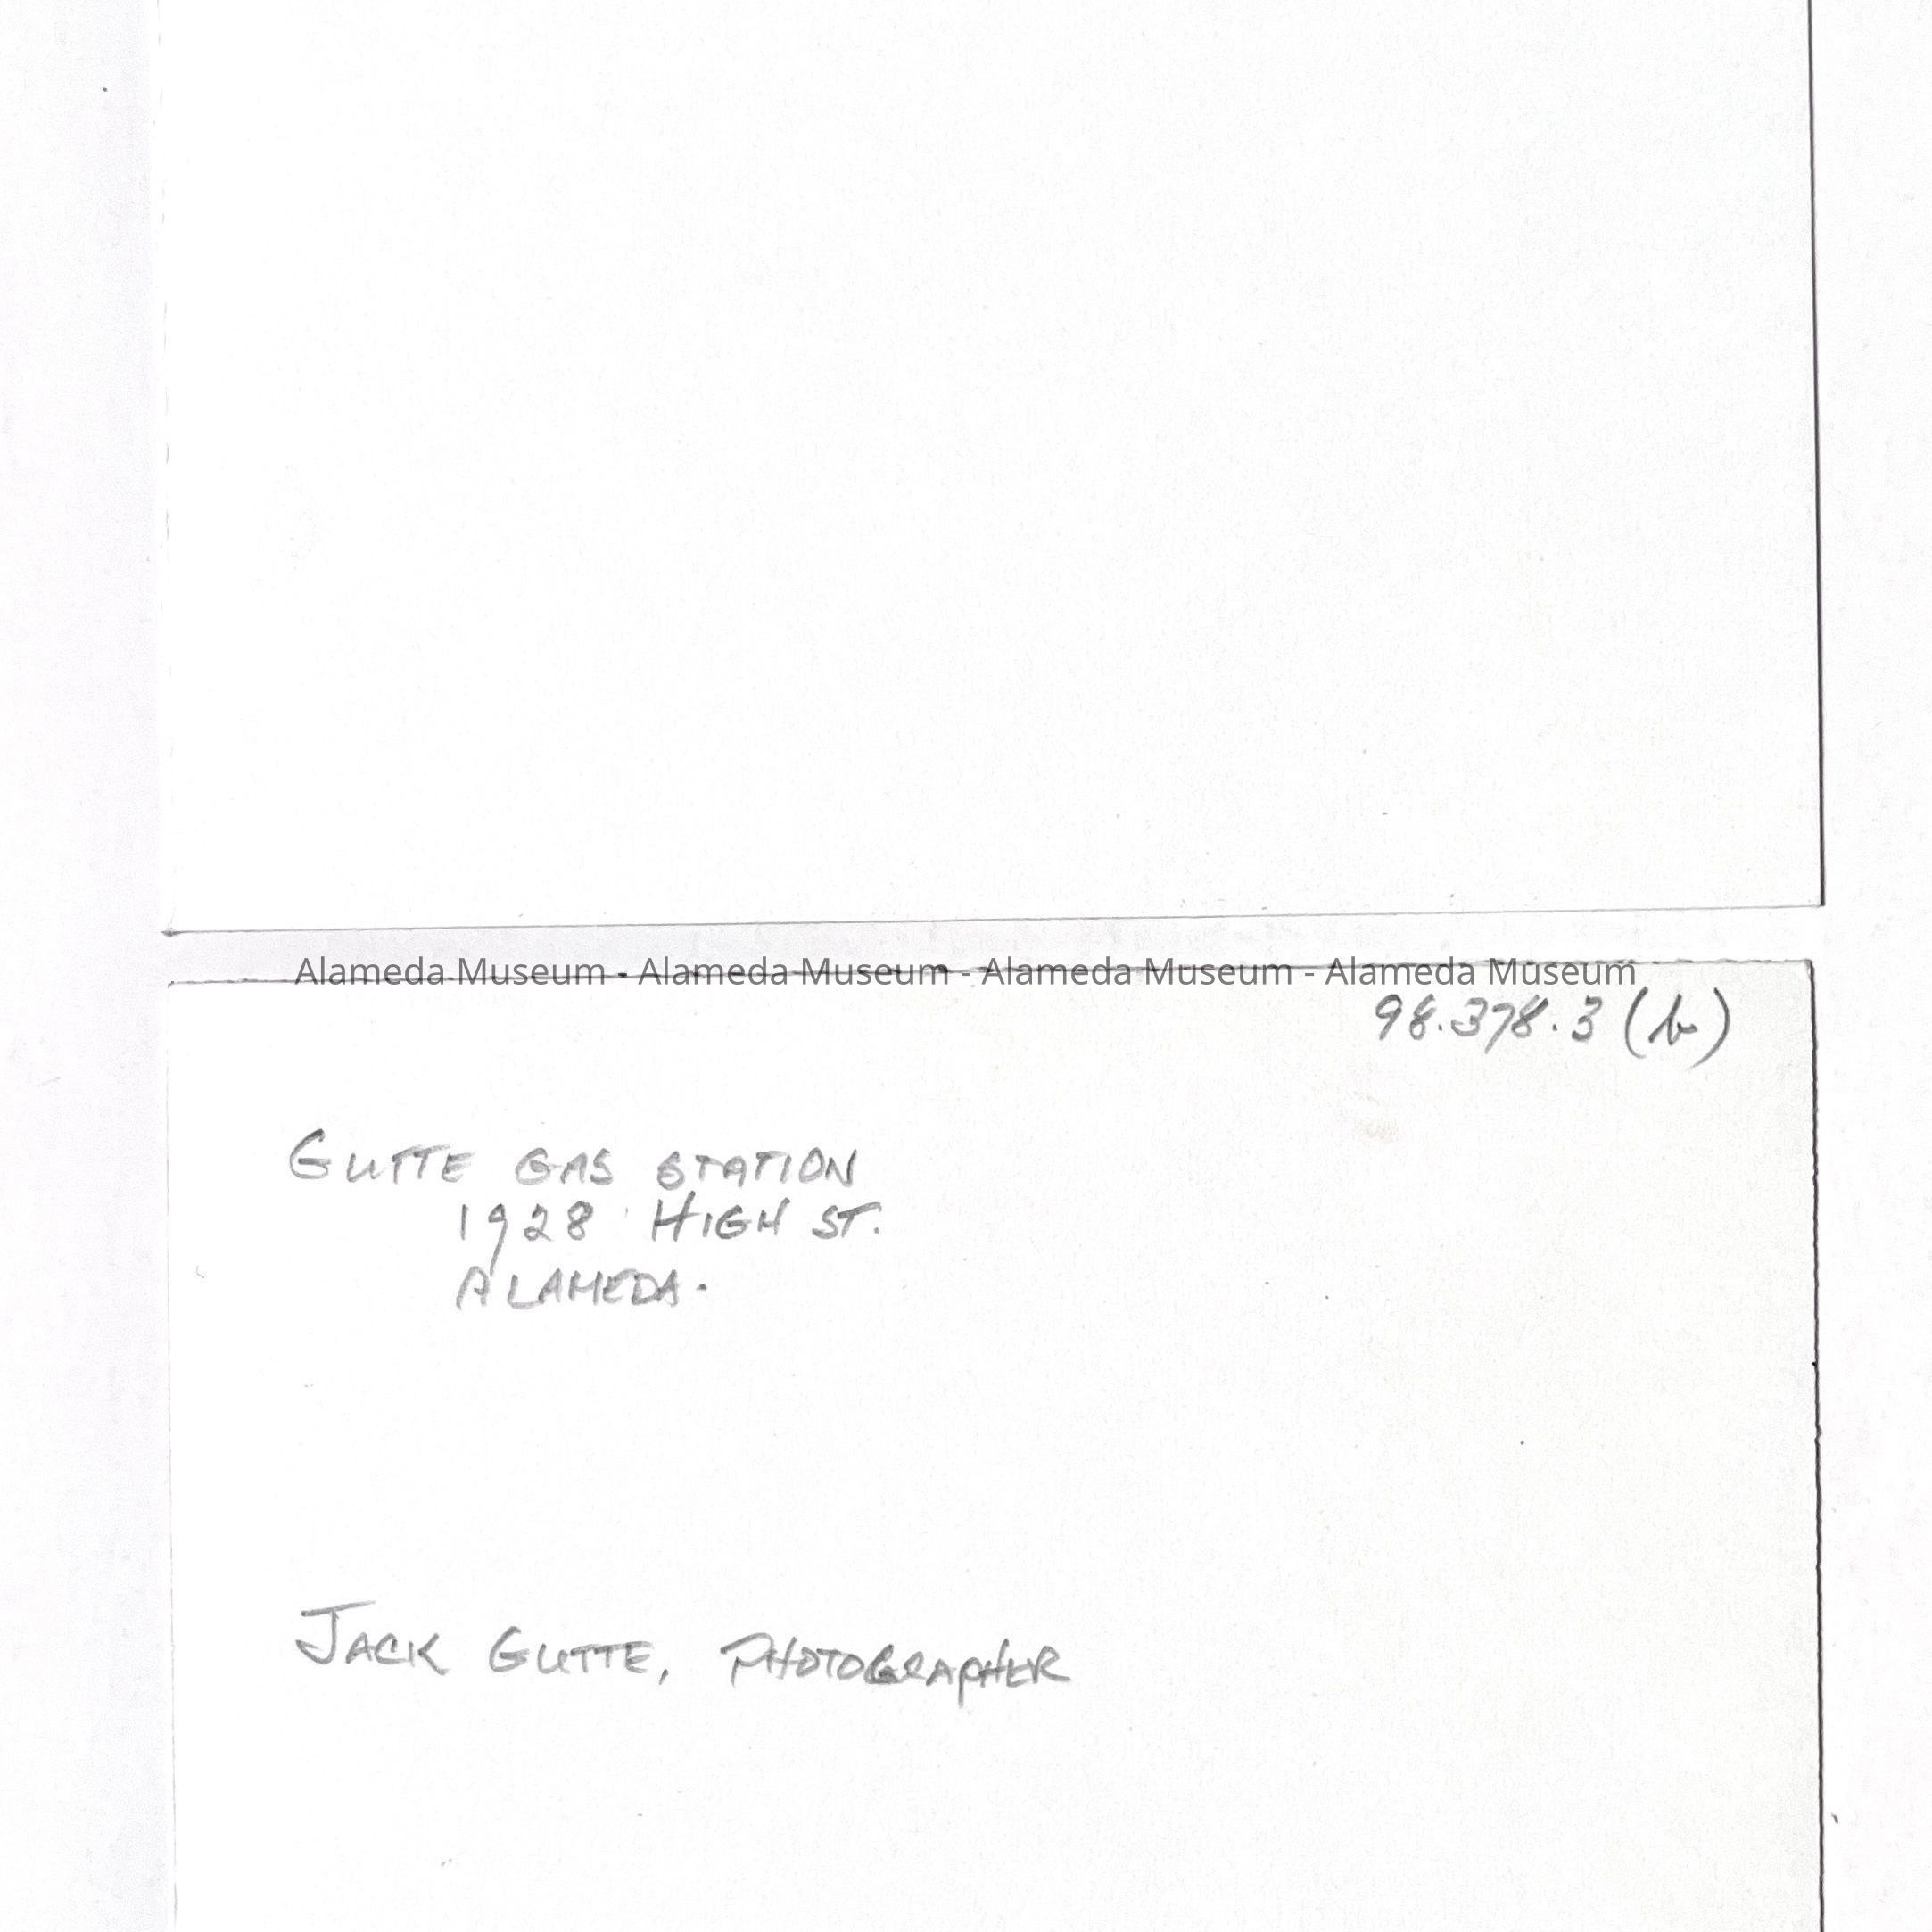 Alameda Museum - Alameda Museum - Alameda Museum - Alameda Museum
98.378.3 (b)
GUTTE GAS STATION
1928 HIGH ST.
ALAMEDA.
JACK GUTTE, PHOTOGRAPHER